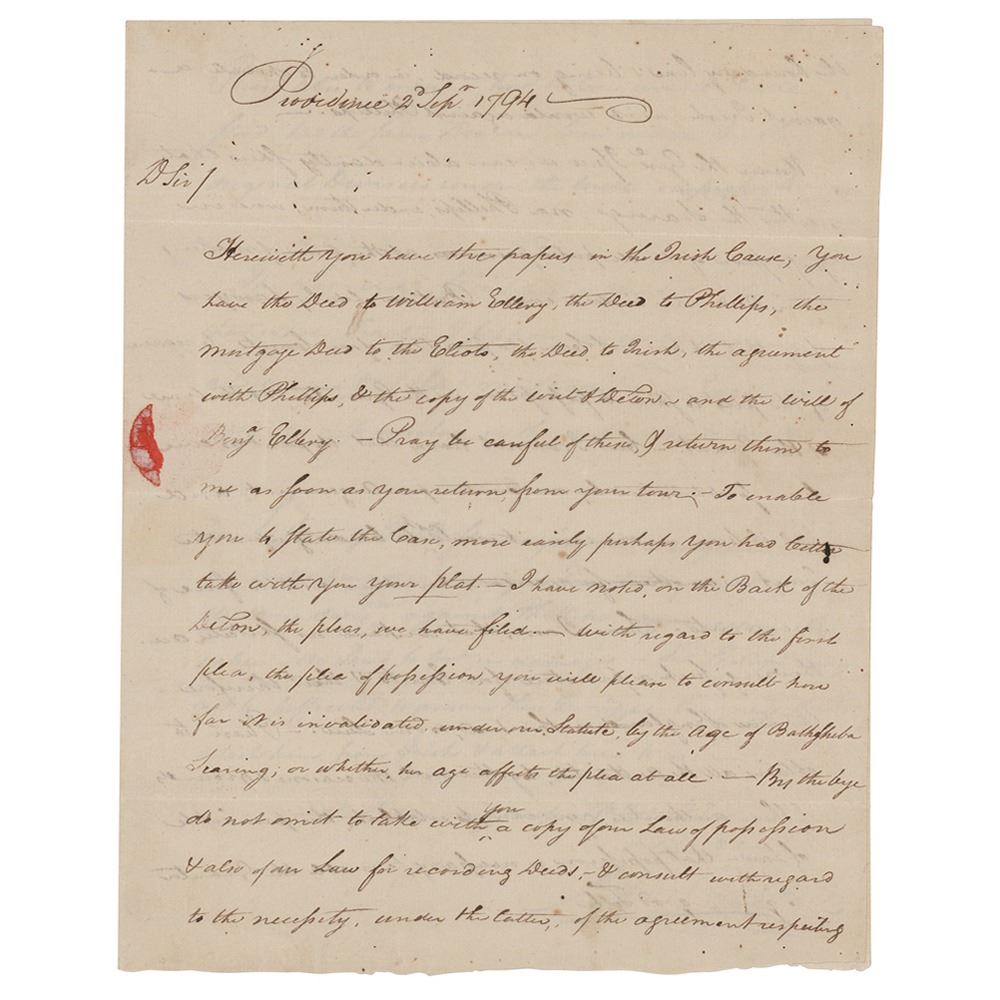 Providence 2d Sepr 1794
D Sir/
Herewith you have the papers in the Irish Cause, You
have the Deed to William Ellery, the Deed to Phillips, the
mortgage Deed to the Eliots, the Deed to Irish, the agreement
with Phillips, & the copy of the writ & Delon - and the will of
Benja Ellery. - Pray be careful of these, & return them to
me as soon as you return from your tour. - To enable
you to State the Case, more easily perhaps you had better
take with you your plat. - I have noted, on the Back of the
Delon, the pleas, we have filed. - With regard to the first
plea, the plea of possession, you will please to consult how
far it is invalidated, under our Statute, by the Age of Bathsheba
Searing; or whether her age affects the plea at all. - By the bye
do not omit to take with you a copy of our Law of possession
& also of our Law for recording Deeds, - & consult with regard
to the necessity, under the latter, of the agreement respecting